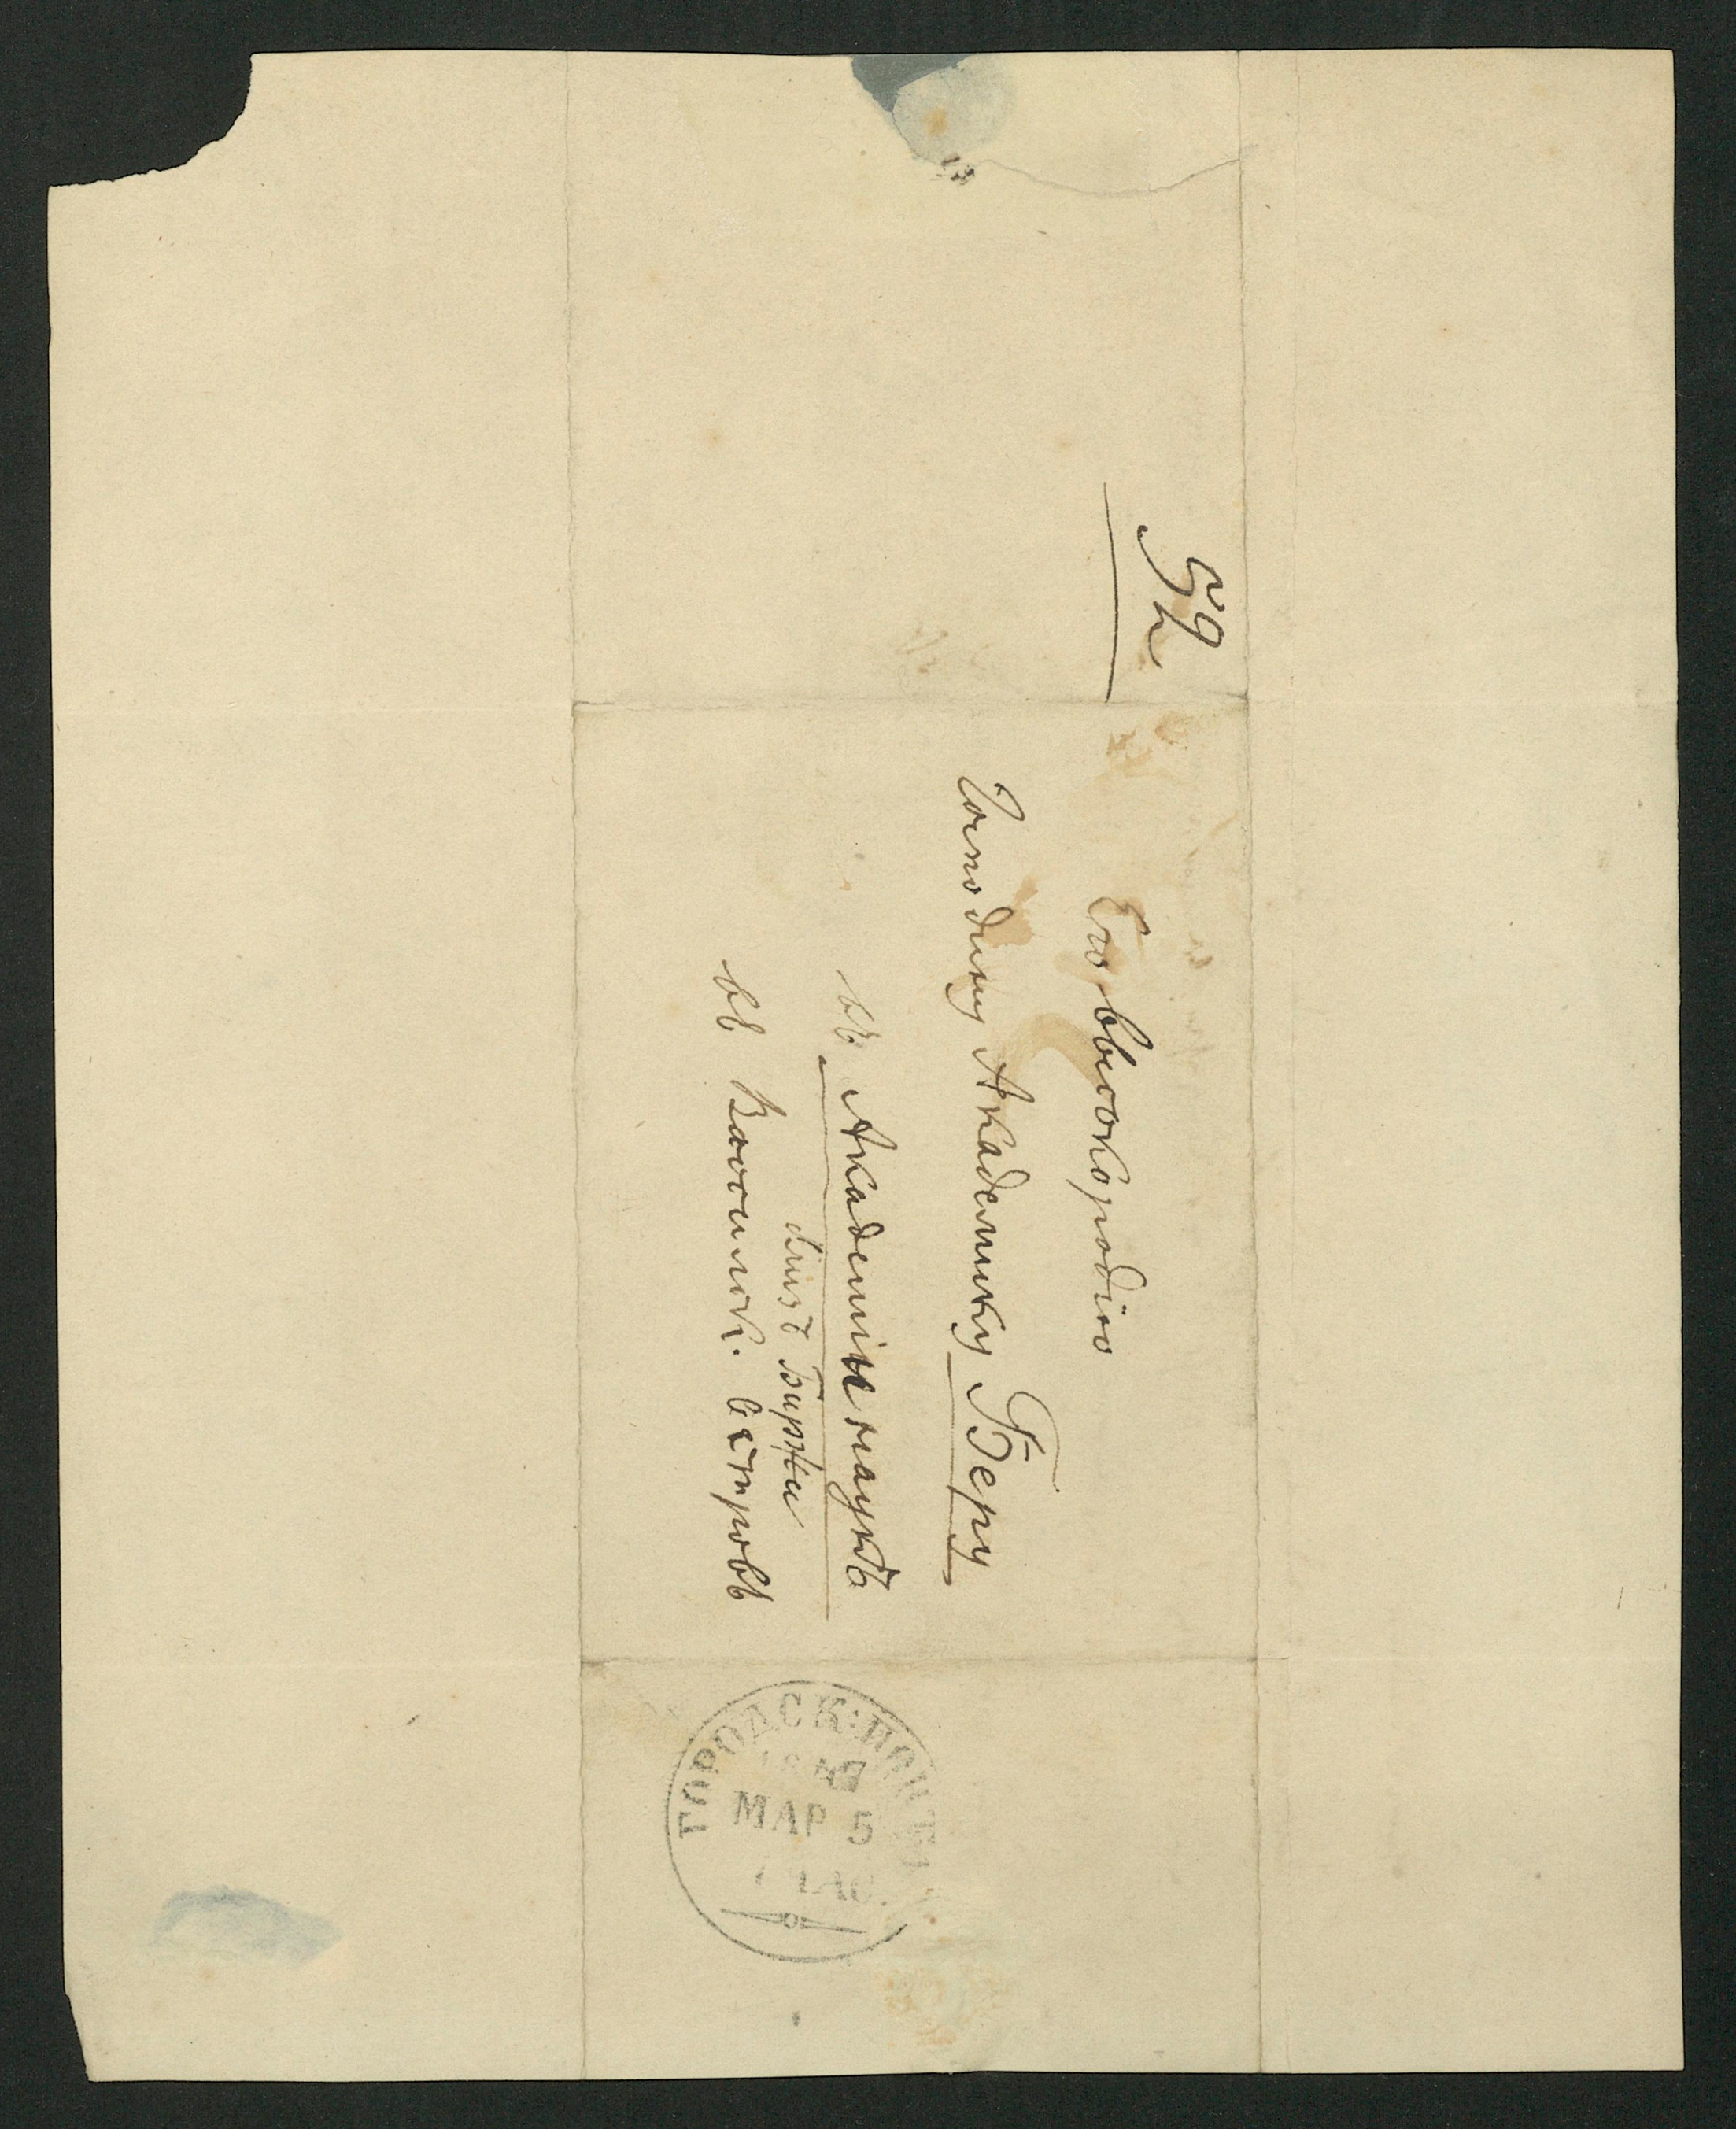 52
Его высокородiю
Господину Академику Беру
въ Академiи наукъ
близъ Биржи
въ Васильев. островѣ
ГОРОДСК: ПОЧТА
1847
МАР 5
ЧАС.